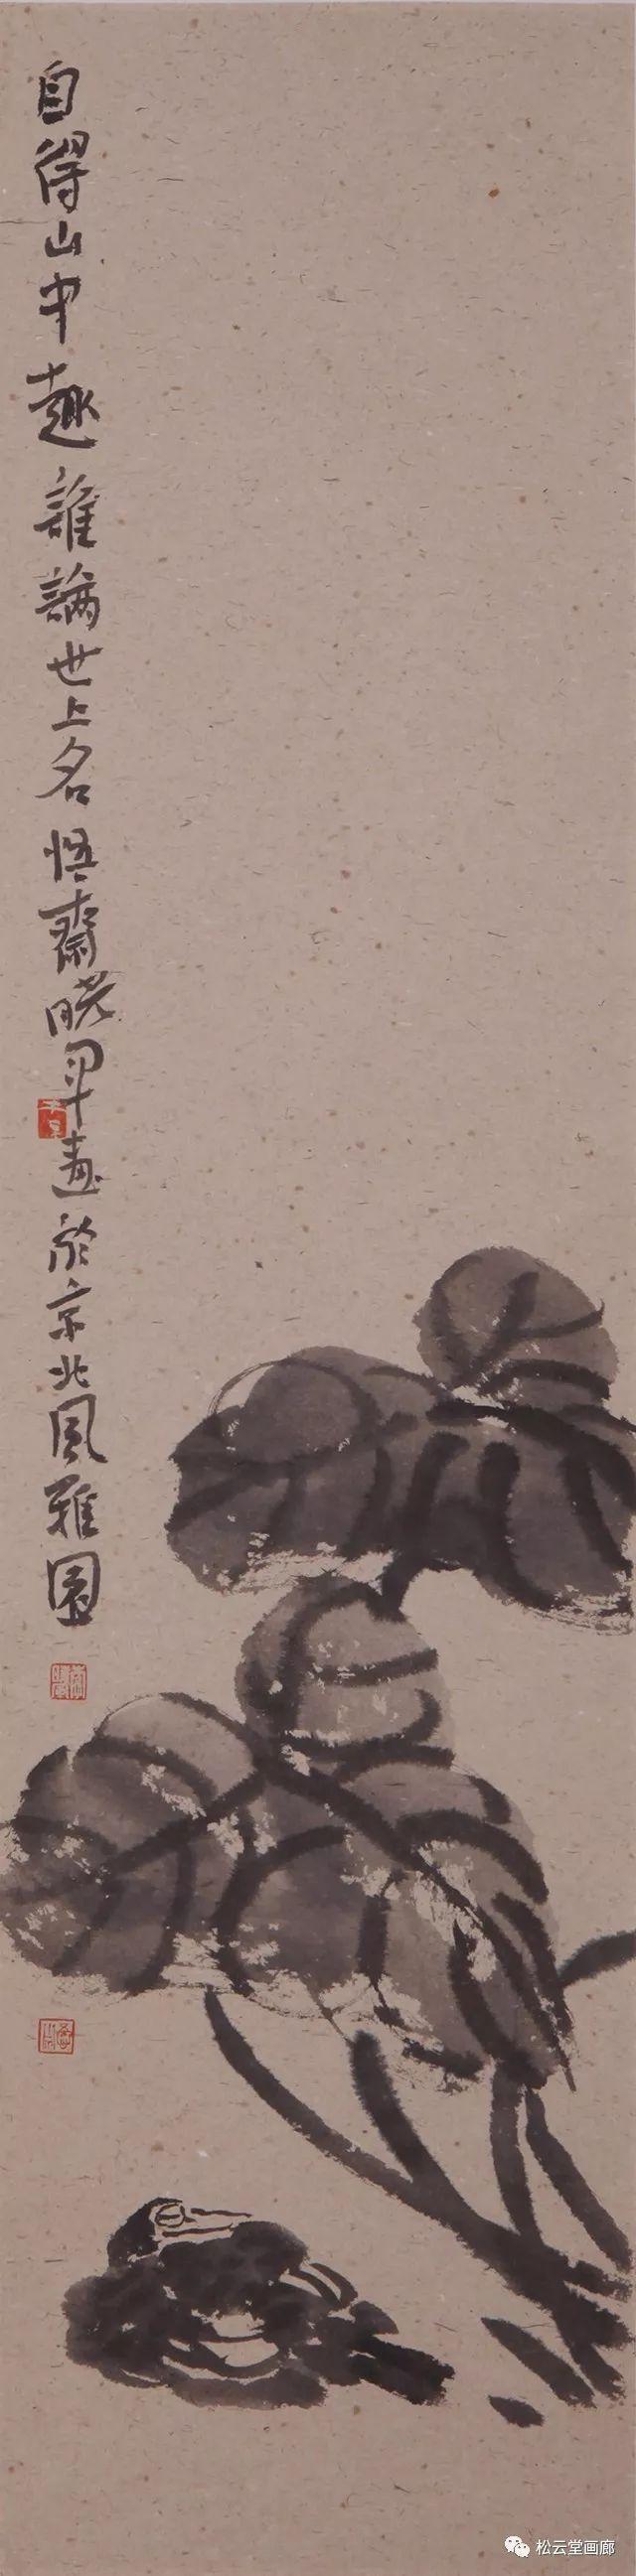 自得山中趣誰論世上名悟齋晓军畫於京北风雅園
松云堂画廊